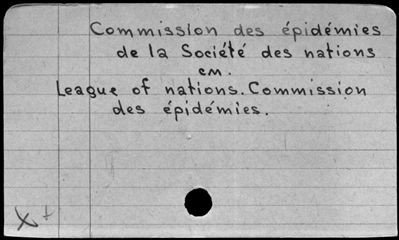 Commission des épidémies
de la Société des nations
см.
League of nations. Commission
des épidémies.